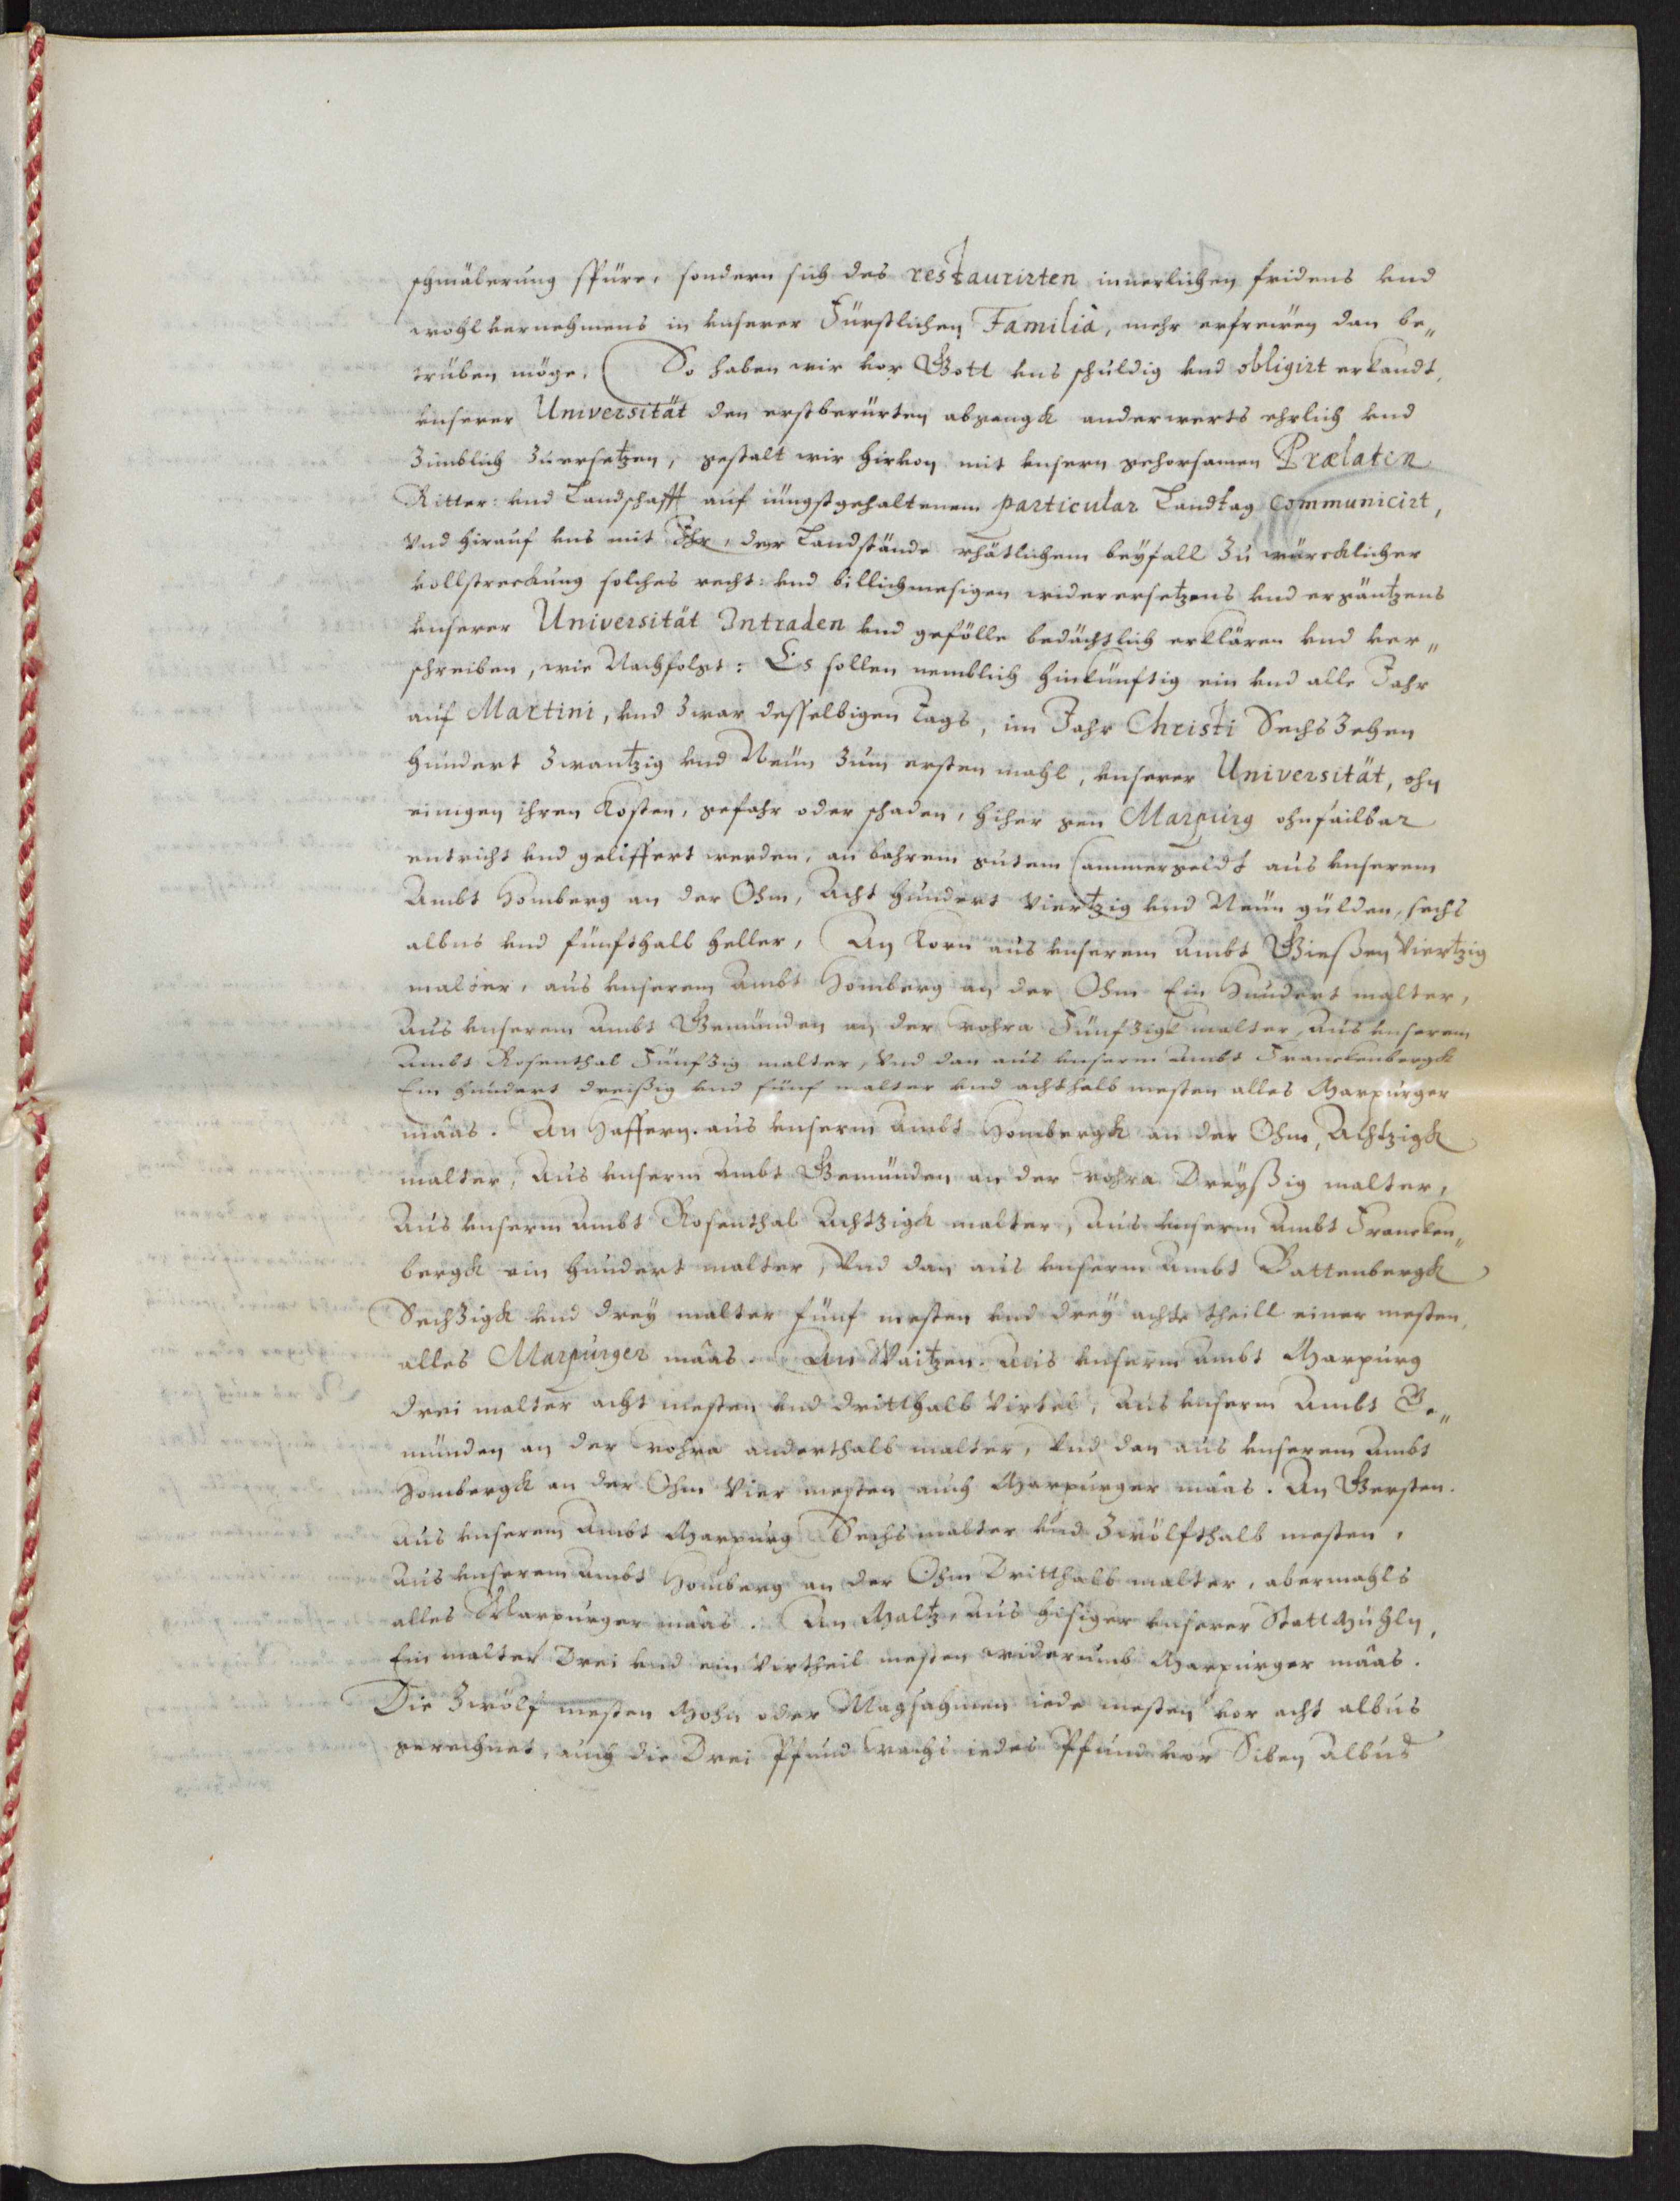 schmälerung spüre, sondern sich des restaurirten innerlichen fridens vnd
wohlvernehmens in vnserer Fürstlichen Familiâ, mehr erfrewen dan be„
trüben möge. So haben wir vor Gott vns schuldig vnd obligirt erkandt,
vnserer Universität den erstberürten abgangk anderwerts ehrlich vnd
zimblich zuersetzen, gestalt wir hirvon mit vnsern gehorsamen Prælaten
Ritter: vnd Landschafft auf iüngstgehaltenem particular Landtag communicirt,
Vnd hirauf vns mit Ihr, der Landstände rhätlichem beyfall zu würcklicher
vollstreckung solches recht: vnd billichmesigen widerersetzens vnd ergäntzens
vnserer Universität Intraden vnd gefölle bedächtlich erklären vnd ver„
schreiben, wie Nachfolgt: Es sollen nemblich hinkünftig ein vnd alle Jahr
auf Martini, vnd zwar desselbigen Tags, im Jahr Christi Sechszehen
hundert zwantzig vnd Neün zum ersten mahl, vnserer Universität, ohn
einigen ihren Kosten, gefahr oder schaden, hiher gen Marpurg ohnfailbar
entricht vnd geliffert werden, an bahrem gutem Cammergeldt aus vnserem
Ambt Homberg an der Ohm, Acht hundert Viertzig vnd Neün gülden, sechs
albus vnd fünfthalb heller, An Korn aus vnserem Ambt Gießen Viertzig
malter, aus vnserem Ambt Homberg an der Ohm Ein Hundert malter,
Aus vnserem Ambt Gemünden an der Wohra Fünfzigk malter, Aus vnserem
Ambt Rosenthal Fünfzig malter, Vnd dan aus vnserm Ambt Franckenbergk
Ein hundert dreißig vnd fünf malter vnd achthalb mesten alles Marpurger
mâas. An Haffern. aus vnserm Ambt Hombergk an der Ohm, Achtzigk
malter, Aus vnserm Ambt Gemünden an der Wohra Dreyßig malter,
Aus vnserm Ambt Rosenthal Achtzigk malter, Aus vnserm Ambt Francken„
bergk ein hundert malter, Vnd dan aus vnserm Ambt Battenbergk
Sechzigk vnd drey malter fünf mesten vnd drey achte theill einer mesten,
alles Marpurger mâas. An Waitzen. Aus vnserm Ambt Marpurg
drei malter acht mesten vnd dritthalb Virtel, Aus vnserm Ambt Ge„
münden an der Wohra anderthalb malter, Vnd dan aus vnserem Ambt
Hombergk an der Ohm Vier mesten auch Marpurger mâas. An Gersten.
aus vnserem Ambt Marpurg Sechs malter vnd zwölfthalb mesten,
Aus vnserem Ambt Homberg an der Ohm Dritthalb malter, abermahls
alles Marpurger mâas. An Maltz, aus hisiger vnserer Statt Mühln,
Ein malter Drei vnd ein Virtheil mesten widerumb Marpurger mâas.
Die zwölf mesten Mohn oder Magsahmen iede mesten vor acht albus
gerechnet, auch die Drei Pfund Wachs iedes Pfund vor Siben Albus